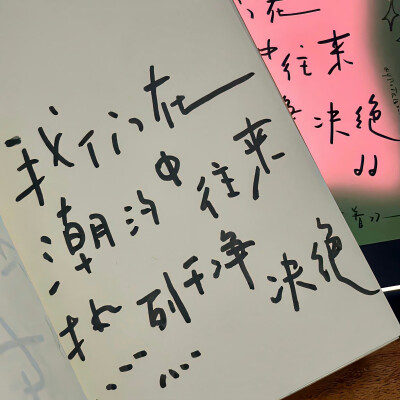 我们在
潮汐中往来
干净决绝
……
在
中往来
净决绝